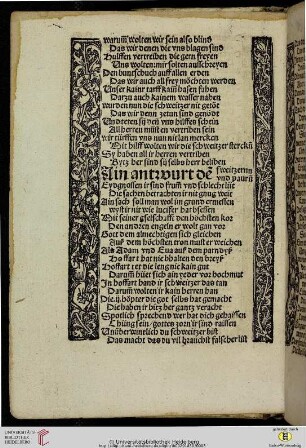 warum wolten wir sein also blind
Das wir denen die vns blagen sind
Hulffen vertreiben die gern freyen
Uns wolten: mir solten auffschreyen
Den buntschuch auff allen erden
Das wir auch all frey möchten werden
Unser kainr tarff kaim hasen
Dartzu auch kainem wasser nahen
wurden nun die schweitzer nit gedöt
Das wir denn zetun sind genödt
Und tetten sy den vns hilffen sein
All herren müsten vertriben sein
wir türfften vns nun nit lan mercken
Mit hilff wolten wir die schweitzer stercken
Sy haben all ir herren vertriben
Yetz her sind sy selbs herr beliben
Ain antwurt dē
sweitzern
vnd paurn
Eydgnossen ir sind frum vnd schlecht lüt
Die sachen betrachten ir nit gnug weit
Ain sach soll man wol im grund ermessen
wyst ir nit wie lucifer hat besessen
Mit seiner gselschafft den höchsten kor
Den andern englen er wolt gan vor
Got dem almechtigen sich gleichen
Auß dem höchsten tron must er weichen
Als Adam vnd Eua auß dem pardyß
Hoffart hat nie behalten den breyß
Hoffart tet die leng nie kain gut
Darum hüet sich ain yeder vor hochmut
In hoffart hand ir schweitzer das tan
Darum wolten ir kain herren han
Die .ij. höpter die got selbs hat gemacht
Die haben ir hertz her gantz veracht
Spotlich sprechend wer hat dich gehaissen
Ebung sein gottes zorn ir sünd raissen
Unüberwintlich du schweitzer bist
Das macht das du vil brauchst falscher list
UNIVERSITÄTS-
BIBLIOTHEK
HEIDELBERG
© Universitätsbibliothek Heidelberg
gefördert durch